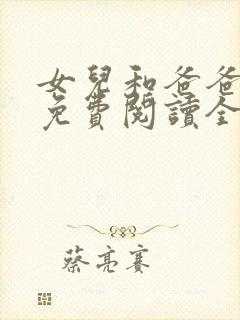 女兒和爸爸
免費閱讀全
蔡亮賽